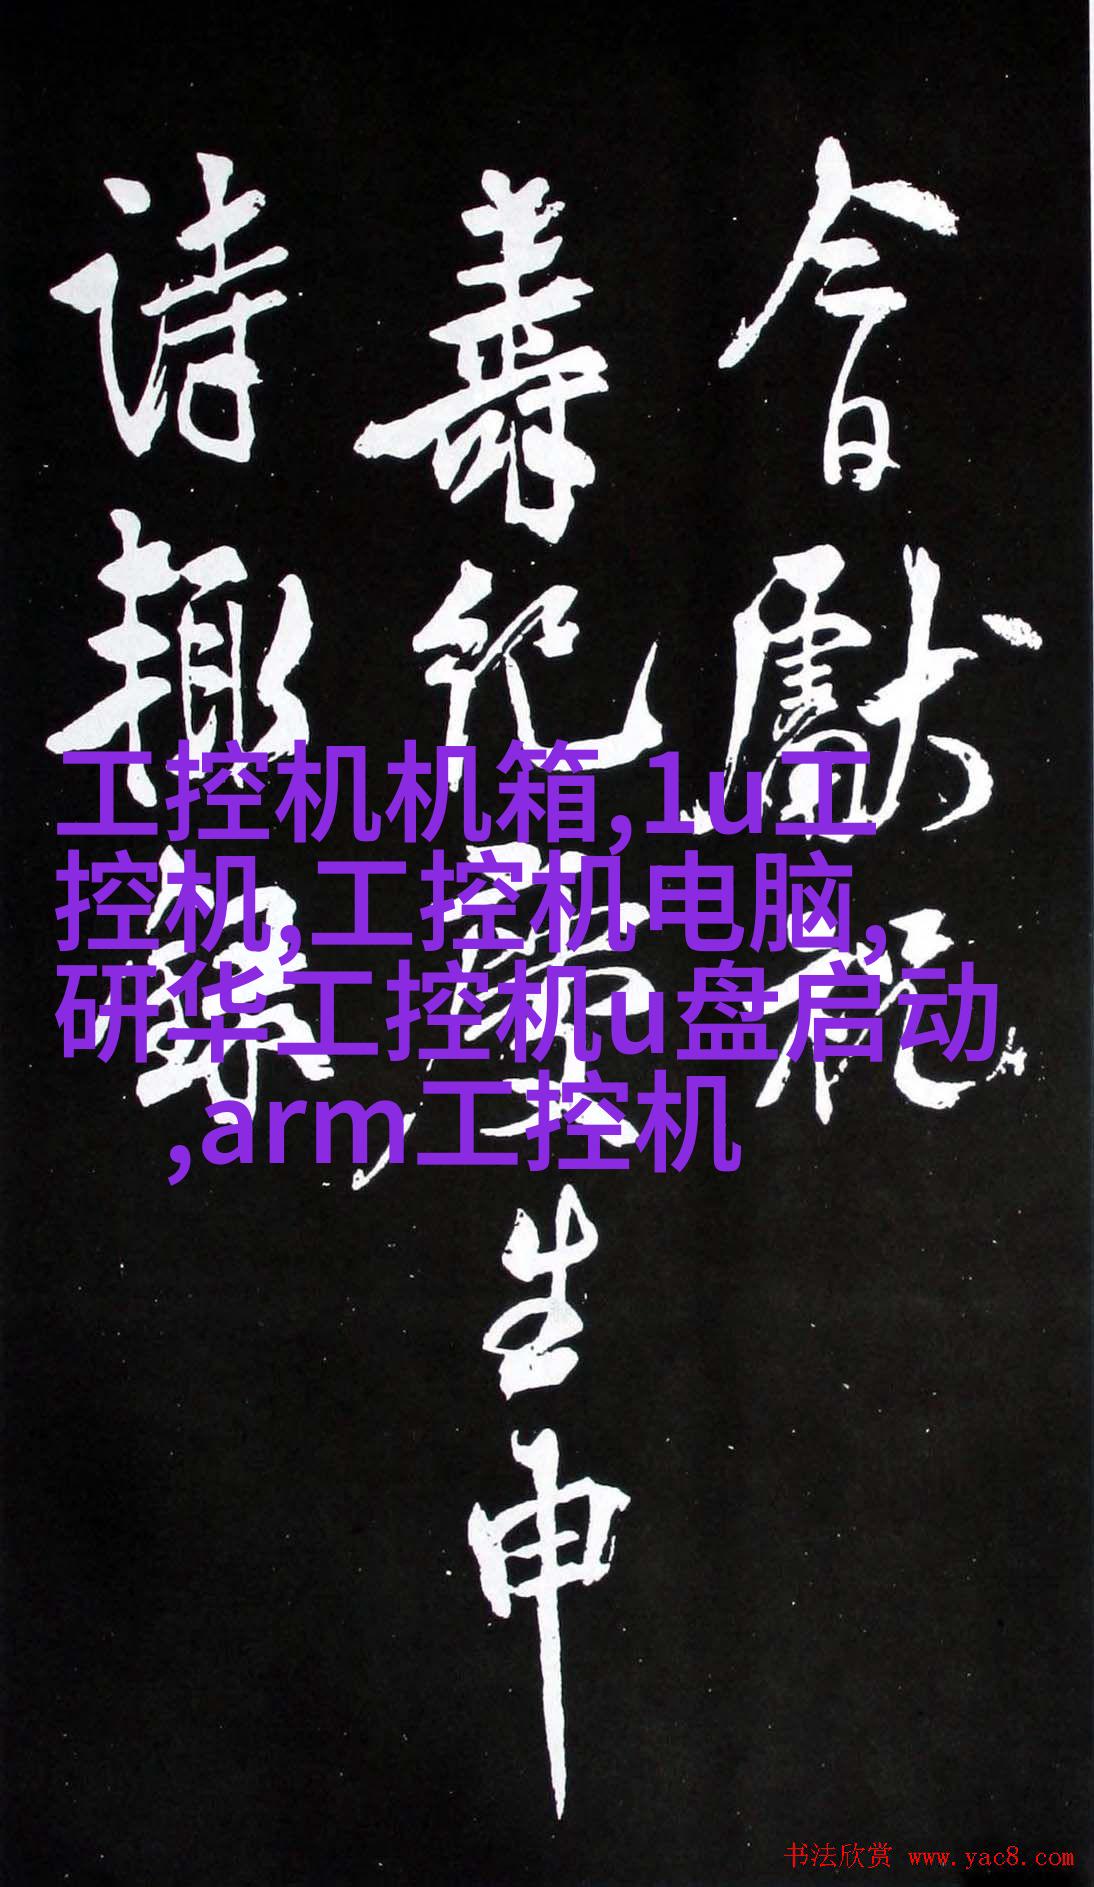 今日獻祝
壽紀生申
詩趣
工控机机箱,1u工
控机,工控机电脑,
研华工控机u盘启动
,arm工控机
书法欣赏 www.yac8.com